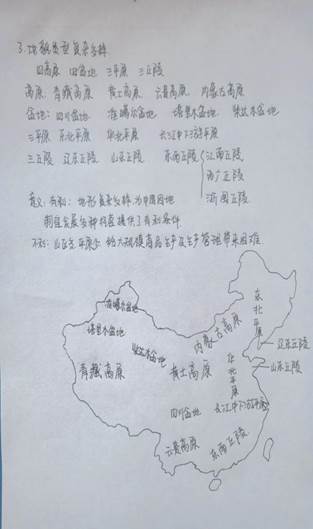 3. 地貌类型复杂多样
四高原 四盆地 三平原 三丘陵
高原: 青藏高原 黄土高原 云贵高原 内蒙古高原
盆地: 四川盆地 准噶尔盆地 塔里木盆地 柴达木盆地
三平原 东北平原 华北平原 长江中下游平原
三丘陵 辽东丘陵 山东丘陵 东南丘陵 江南丘陵
两广丘陵
浙闽丘陵
意义: 有利: 地形复杂多样, 为中国因地
制宜发展多种经营提供了有利条件
不利: 山区多平原少 给大规模商品生产及生产管理带来困难.
准噶尔盆地
塔里木盆地
柴达木盆地
青藏高原
内蒙古高原
黄土高原
东北平原
华北平原
辽东丘陵
山东丘陵
四川盆地
长江中下游平原
云贵高原
东南丘陵